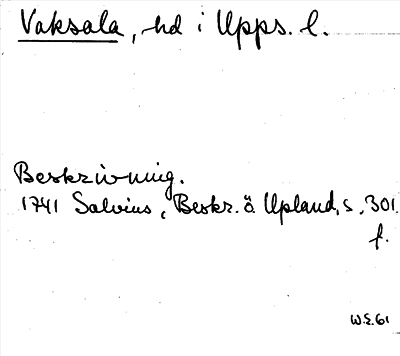 Vaksala, hd i Upps. l.
Beskrivning.
1741 Salvius, Beskr. ö. Upland, s. 301
f.
W.E. 61